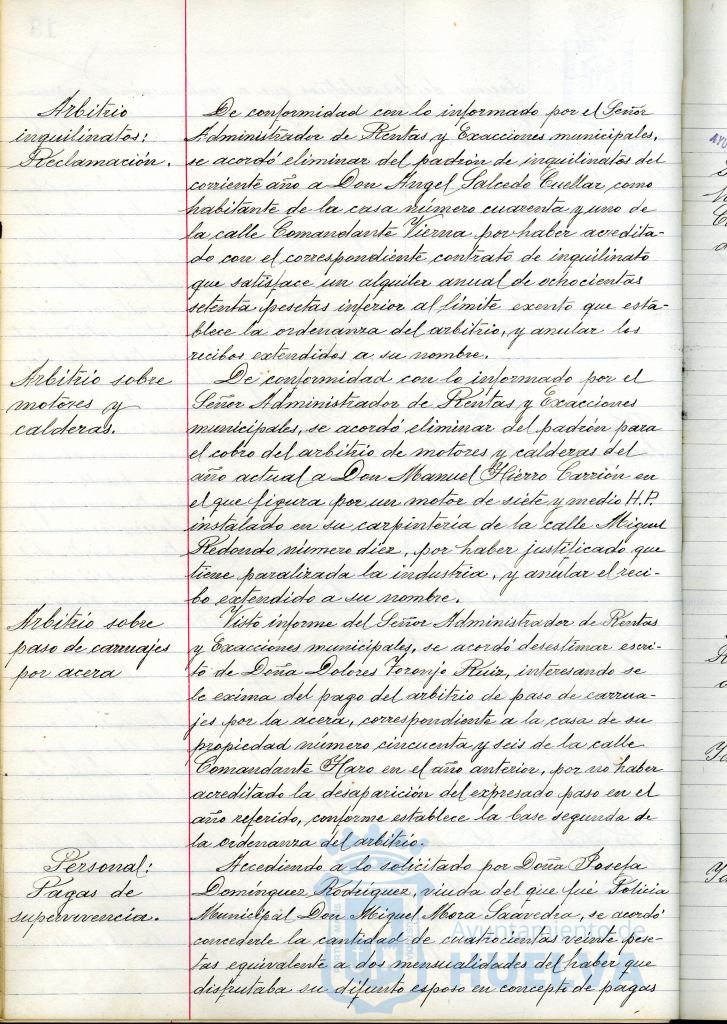 Arbitrio
inquilinatos:
Reclamación.
De conformidad con lo informado por el Señor
Administrador de Rentas y Exacciones municipales,
se acordó eliminar del padrón de inquilinatos del
corriente año a Don Angel Salcedo Cuellar como
habitante de la casa número cuarenta y uno de
la calle Comandante Vierna por haber acredita-
do con el correspondiente contrato de inquilinato
que satisface un alquiler anual de ochocientas
setenta pesetas inferior al límite exento que esta-
blece la ordenanza del arbitrio, y anular los
recibos extendidos a su nombre.
Arbitrio sobre
motores y
calderas.
De conformidad con lo informado por el
Señor Administrador de Rentas y Exacciones
municipales, se acordó eliminar del padrón para
el cobro del arbitrio de motores y calderas del
año actual a Don Manuel Hierro Carrión en
el que figura por un motor de siete y medio H.P.
instalado en su carpintería de la calle Miguel
Redondo número diez, por haber justificado que
tiene paralizada la industria, y anular el reci-
bo extendido a su nombre.
Arbitrio sobre
paso de carruajes
por acera
Visto informe del Señor Administrador de Rentas
y Exacciones municipales, se acordó desestimar escri-
to de Doña Dolores Toronjo Ruiz, interesando se
le exima del pago del arbitrio de paso de carrua-
jes por la acera, correspondiente a la casa de su
propiedad número cincuenta y seis de la calle
Comandante Haro en el año anterior, por no haber
acreditado la desaparición del expresado paso en el
año referido, conforme establece la base segunda de
la ordenanza del arbitrio.
Personal:
Pagas de
supervivencia.
Accediendo a lo solicitado por Doña Josefa
Domínguez Rodríguez, viuda del que fué Policia
Municipal Don Miguel Mora Saavedra, se acordó
concederle la cantidad de cuatrocientas veinte pese-
tas equivalente a dos mensualidades del haber que
disfrutaba su difunto esposo en concepto de pagas
Ayuntamiento de
HUELVA